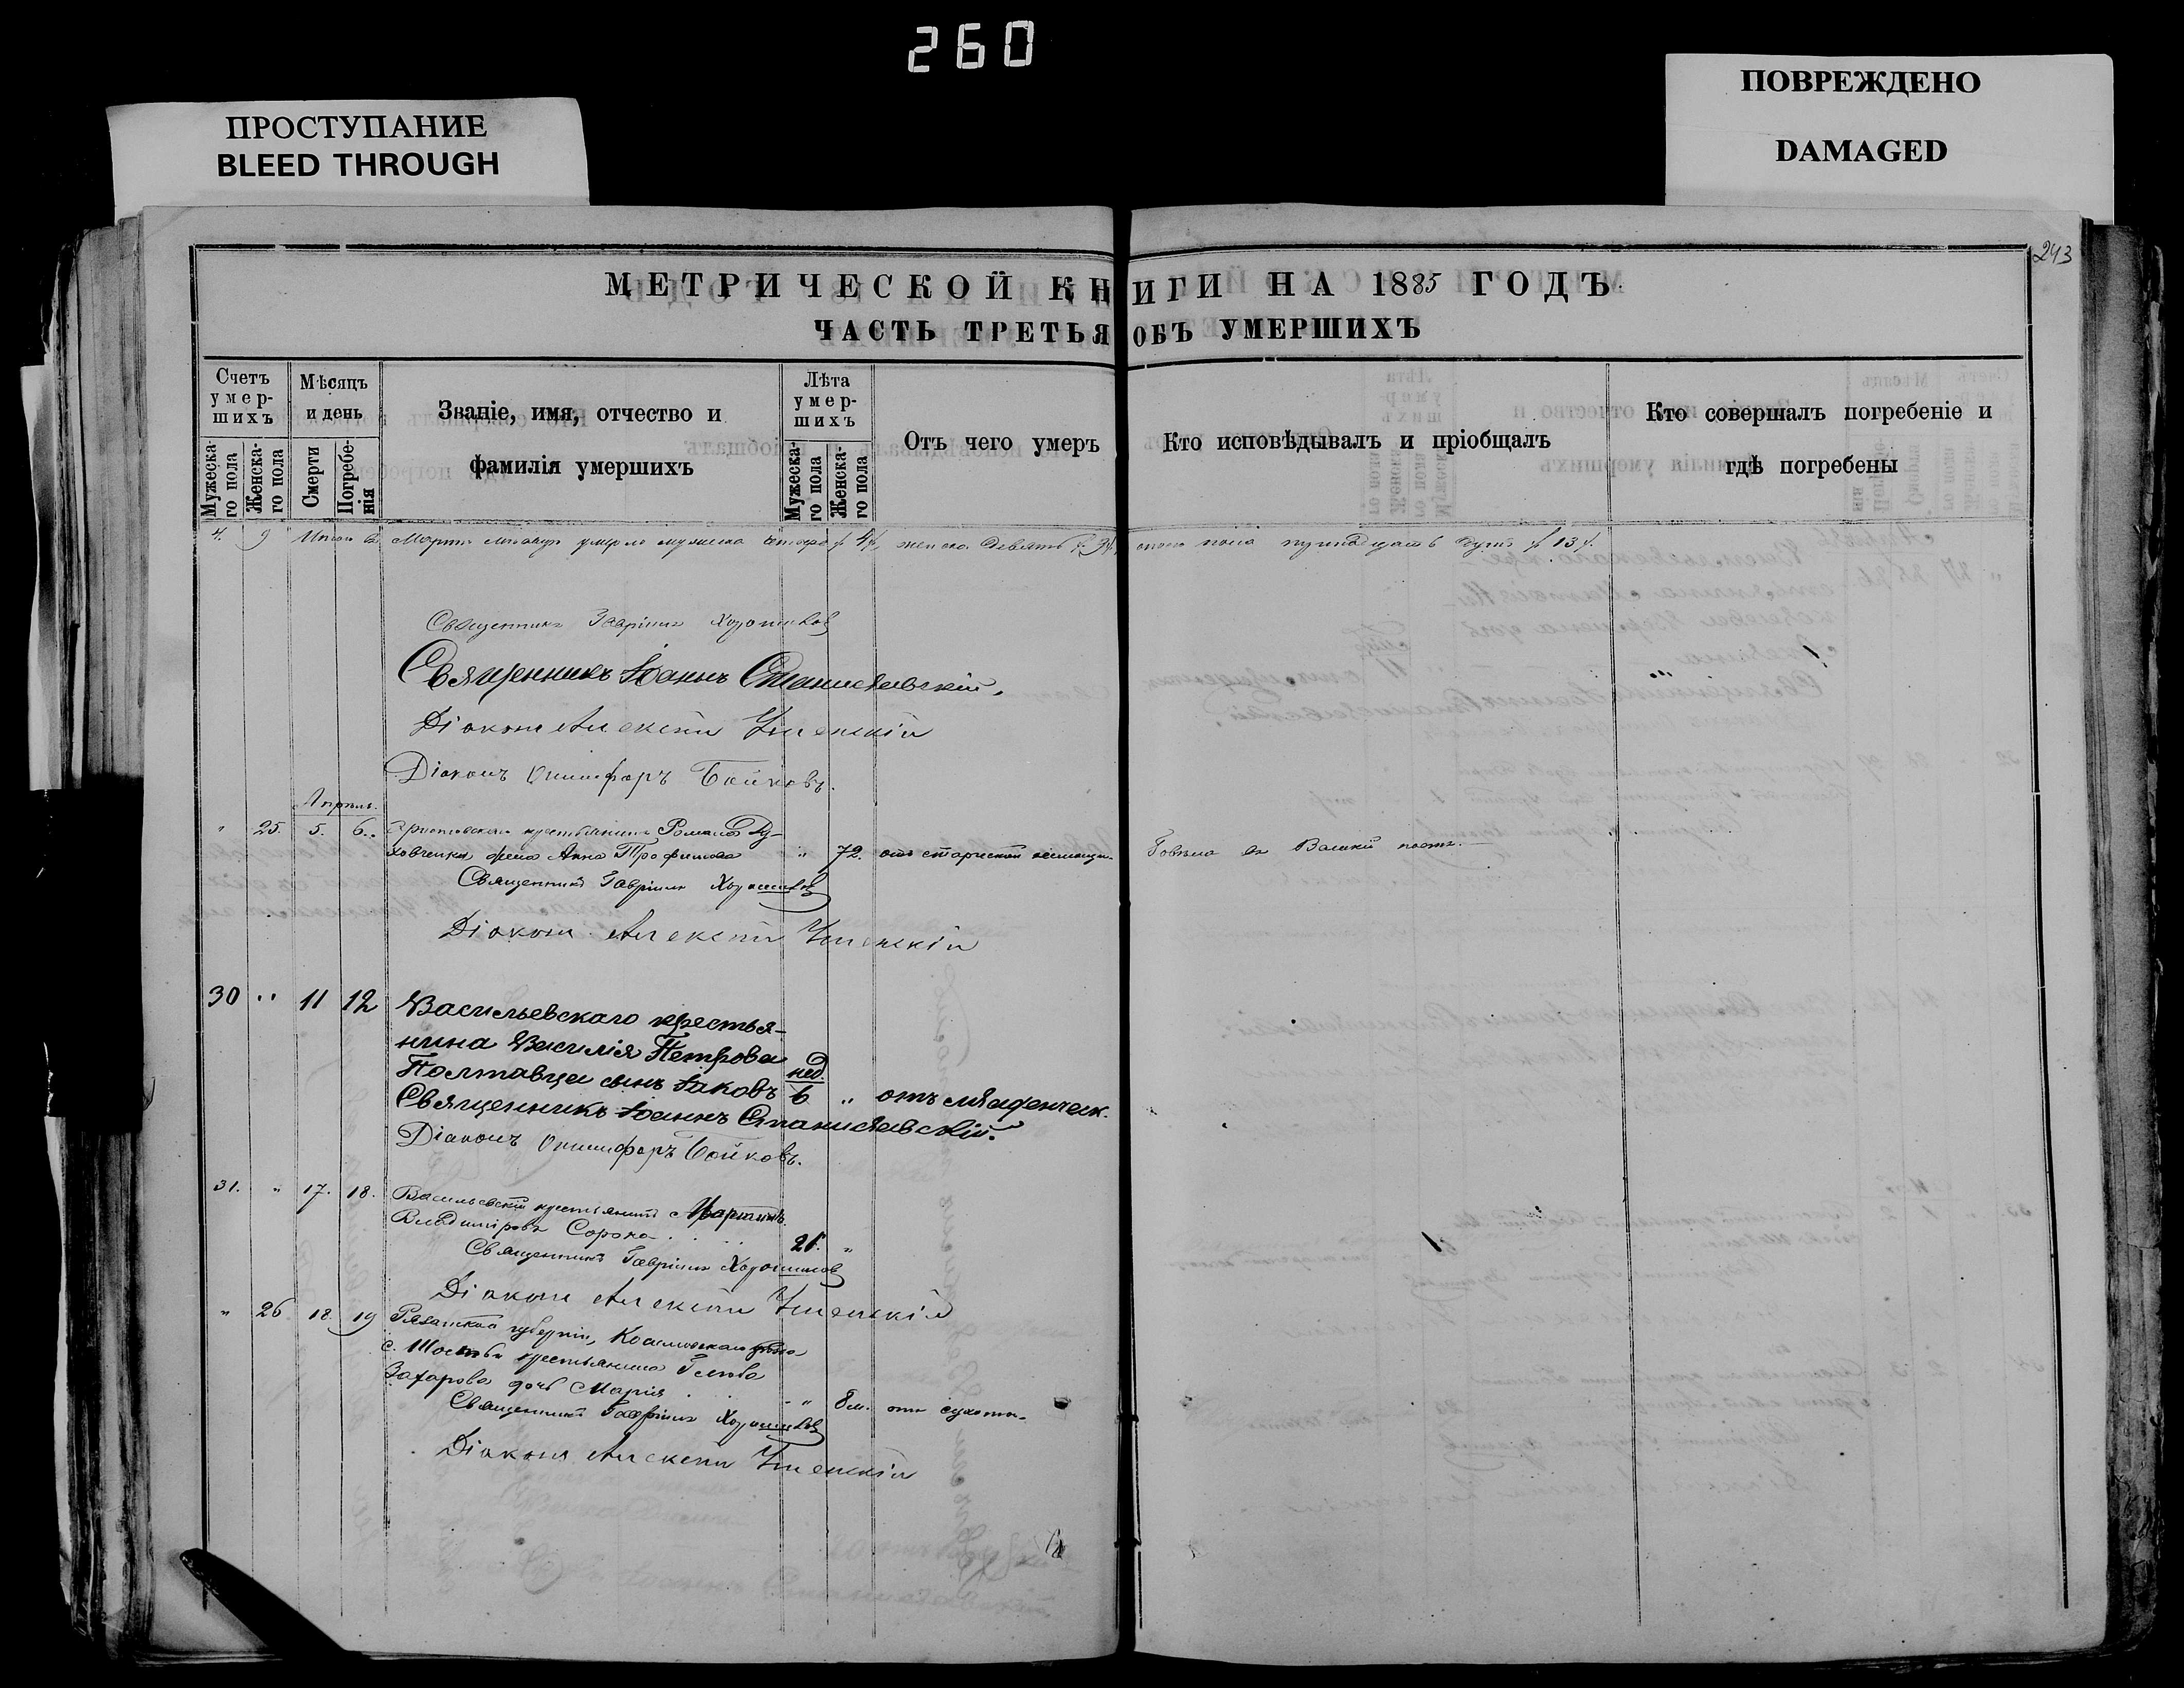 260
ПРОСТУПАНИЕ
BLEED THROUGH
ПОВРЕЖДЕНО
DAMAGED
243
МЕТРИЧЕСКОЙ КНИГИ НА 1885 ГОДЪ.
ЧАСТЬ ТРЕТЬЯ ОБЪ УМЕРШИХЪ
Счетъ умер-шихъ
Мужеска-го пола
Женска-го пола
Мѣсяцъ и день
Смерти
Погребе-нія
Званіе, имя, отчество и
фамилія умершихъ
Лѣта умер-шихъ
Мужеска-го пола
Женска-го пола
Отъ чего умеръ
Кто исповѣдывалъ и пріобщалъ
Кто совершалъ погребеніе и
гдѣ погребены
4. 9 Итого въ Мартѣ мѣсяцѣ умерло мужеска четыре /4/, женска девять /9/, обоего пола тринадцать душъ /13/.
Священникъ Гавріилъ Хорошковъ
Священникъ Іоаннъ Станиславскій.
Діаконъ Алексѣй Успенскій
Діаконъ Онисифоръ Бойковъ.
Апрѣль.
" 25. 5. 6. крестьянина Романа Ду-
ховченка жена Анна Трофимова " 72. отъ старческой немощи. Говѣла въ Великій постъ.
Священникъ Гавріилъ Хорошковъ
Діаконъ Алексѣй Успенскій
30 " 11 12 Васильевскаго крестья-
нина Василія Петрова
Полтавца сынъ Іаковъ нед. 6 " отъ младенческ.
Священникъ Іоаннъ Станиславскій.
Діаконъ Онисифоръ Бойковъ.
31. " 17. 18. Васильевскій крестьянинъ
Владиміровъ Сорока . . . 21. "
Священникъ Гавріилъ Хорошковъ
Діаконъ Алексѣй Успенскій
" 26 18. 19 Рязанской губерніи, Касимовскаго уѣзда
с. крестьянина
Захарова дочь Марія . . " 8 м. отъ сухоты.
Священникъ Гавріилъ Хорошковъ
Діаконъ Алексѣй Успенскій